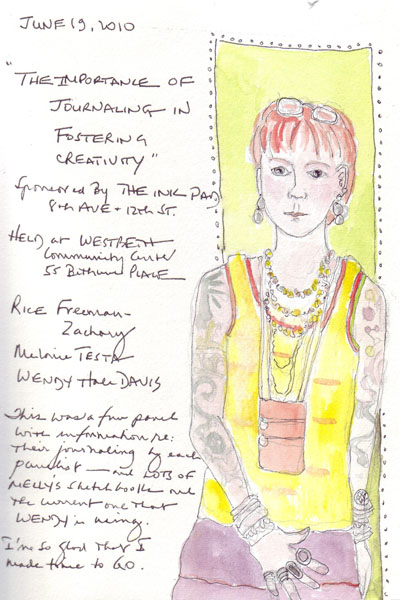 JUNE 19, 2010
"THE IMPORTANCE OF
JOURNALING IN
FOSTERING
CREATIVITY"
Sponsored By THE INK PAD
8th AVE + 12th ST.
HELD at WESTBETH
Community Center
55 Bethune PLACE
RICE Freeman-
Zachery
Melanie TESTA
WENDY Hale DAVIS
This was a fun panel
with information re:
their journaling by each
panelist — and LOTS OF
MELLY'S sketchbooks and
the current one that
WENDY is using.
I'm so glad that I
made time to GO.